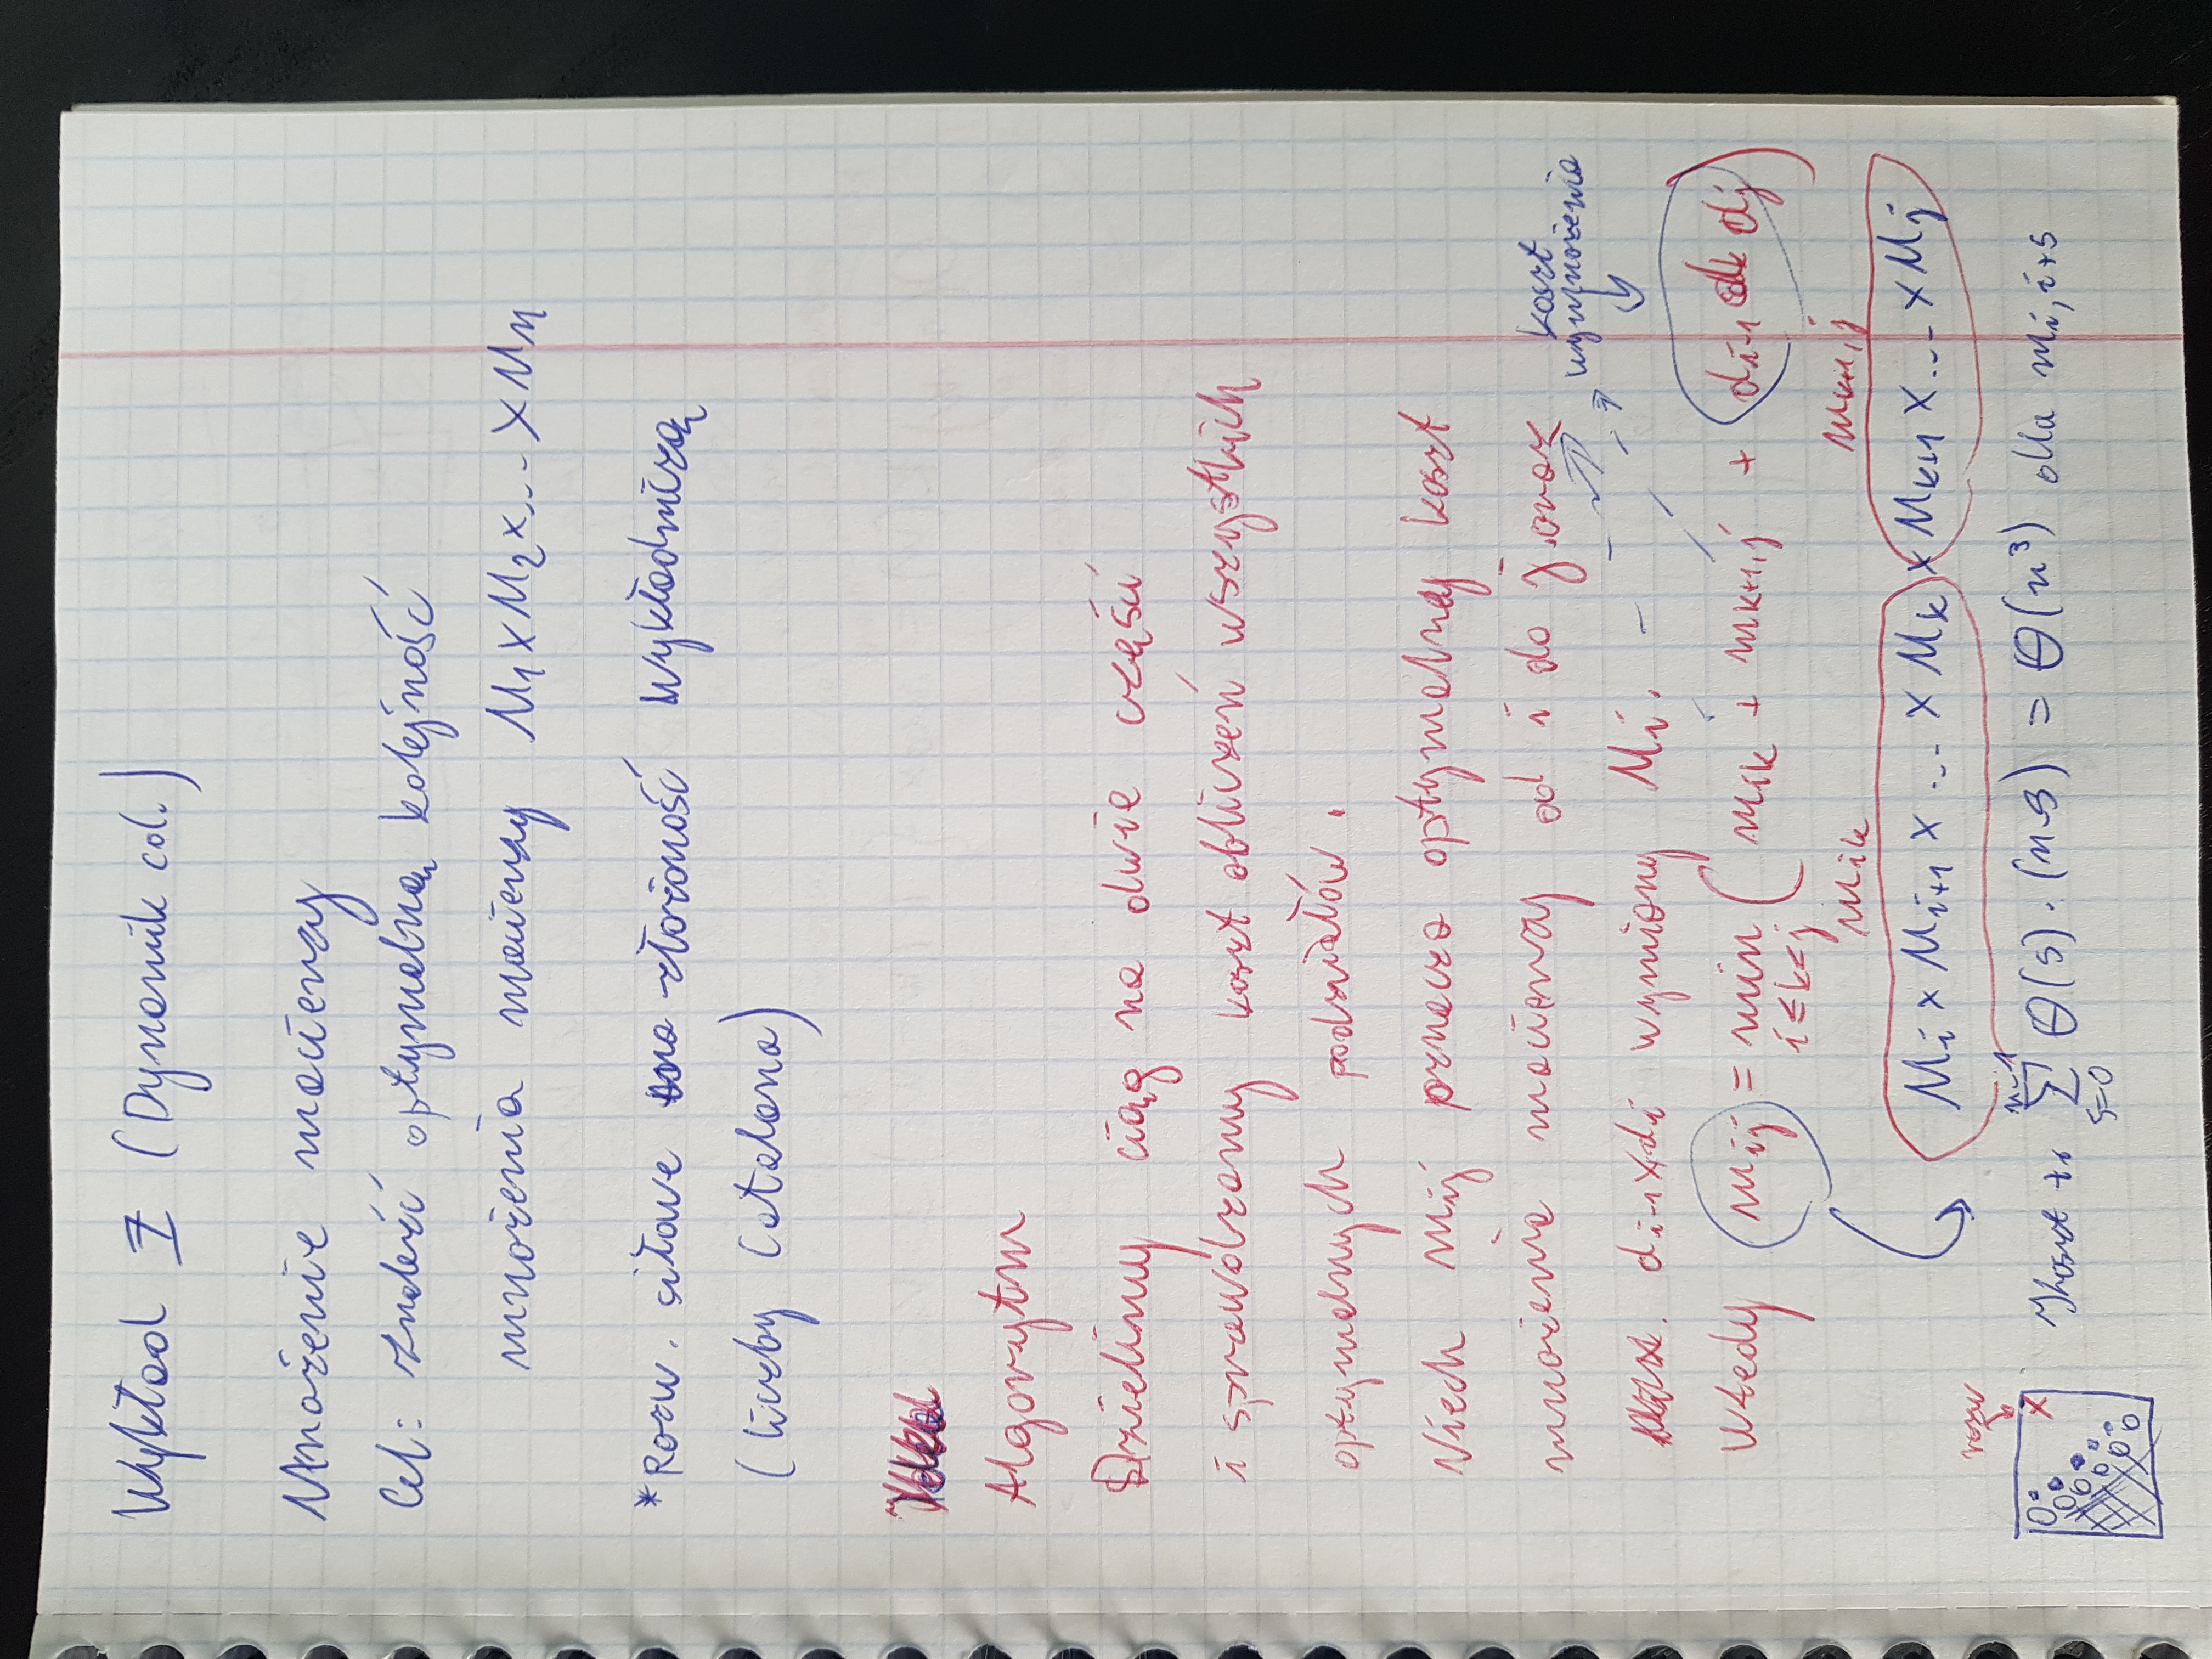 Wykład 7 (Dynamik cd.)
Mnożenie macierzy
Cel: Znaleźć optymalną kolejność
mnożenia macierzy M₁ x M₂ x ... x Mn
*Rozw. siłowe ma złożoność wykładniczą
(liczby Catalana)
Idea
Algorytm
Dzielimy ciąg na dwie części
i sprawdzamy koszt obliczeń wszystkich
optymalnych podziałów.
Niech mij oznacza optymalny koszt
mnożenia macierzy od i do j. oraz
koszt
wymnożenia
di-1 x di wymiary Mi.
Wtedy mij = min (mik + mk+1,j + di-1 dk dj)
i≤k<j
mik mk+1,j
Mi x Mi+1 x ... x Mk x Mk+1 x ... x Mj
rozw
X
n-1
Σ Θ(s) · (n-s) = Θ(n³) dla mi,i+s
s=0